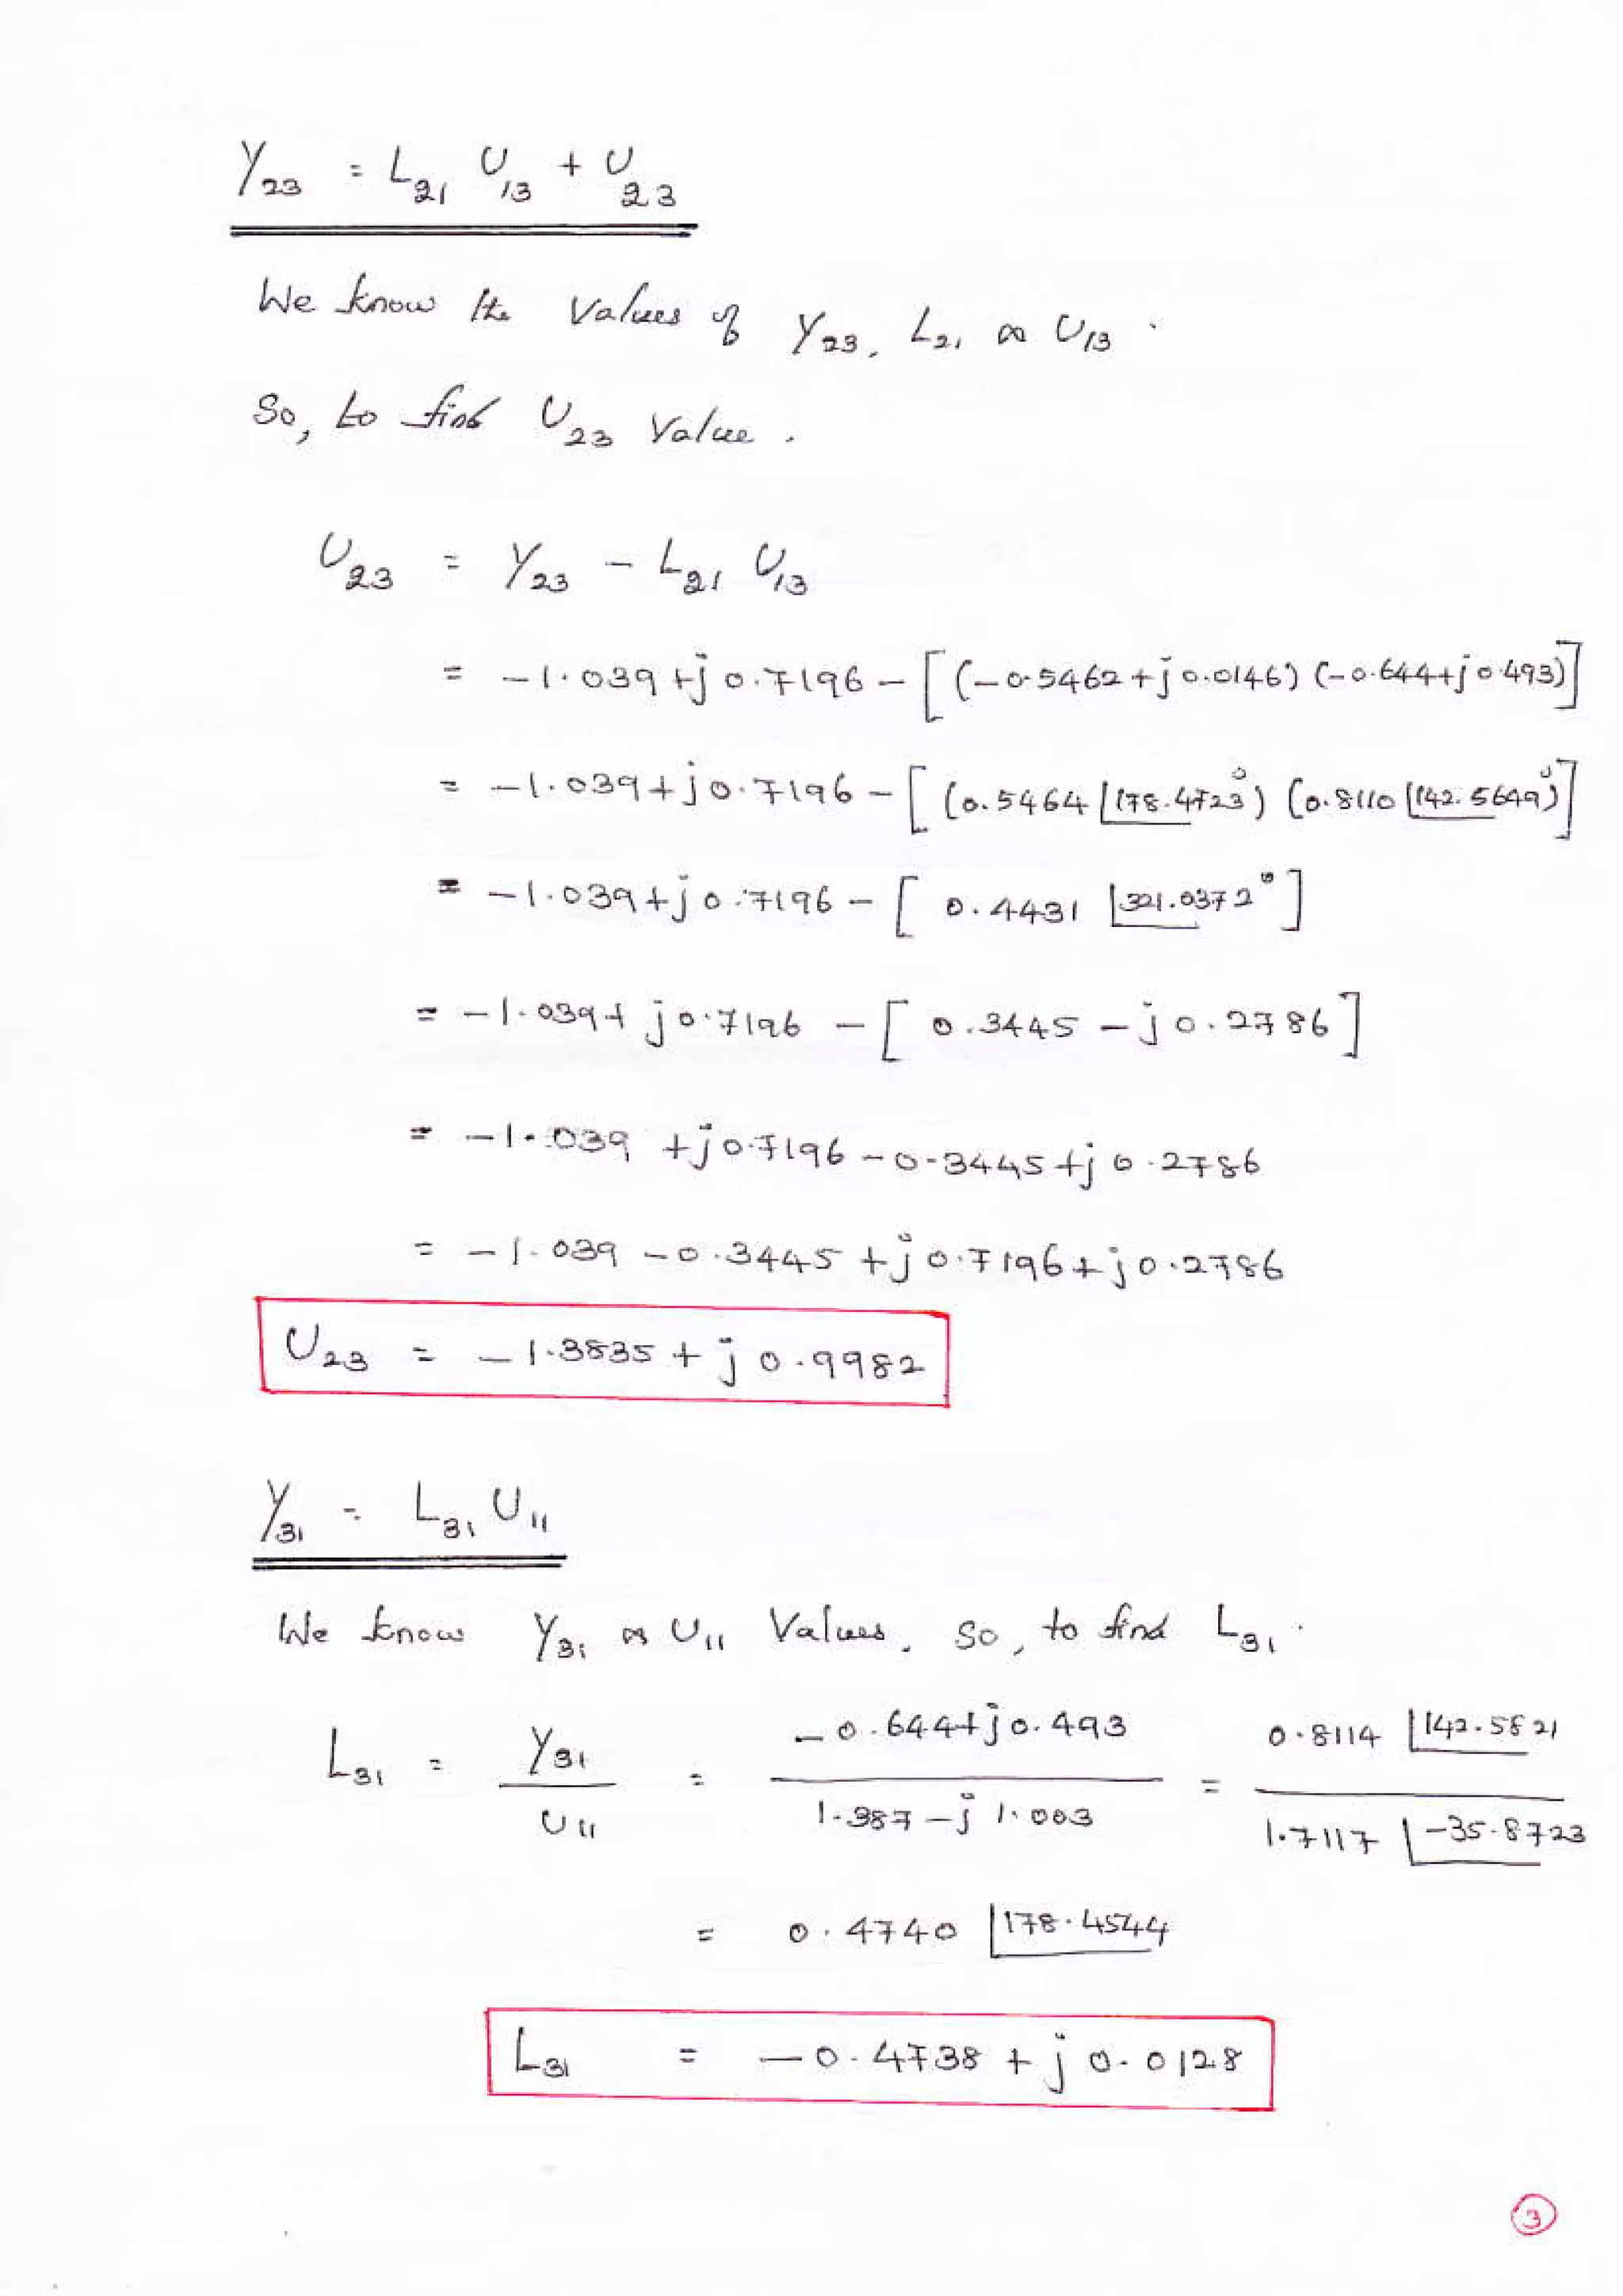 Y23 = L21 U13 + U23
We know the values of Y23, L21 & U13.
So, to find U23 value.
U23 = Y23 - L21 U13
= -1.039 + j0.7196 - [(-0.5462 + j0.0146) (-0.644 + j0.493)]
= -1.039 + j0.7196 - [(0.5464 ∠178.4723°) (0.8110 ∠142.5649°)]
= -1.039 + j0.7196 - [0.4431 ∠321.0372°]
= -1.039 + j0.7196 - [0.3445 - j0.2786]
= -1.039 + j0.7196 - 0.3445 + j0.2786
= -1.039 - 0.3445 + j0.7196 + j0.2786
U23 = -1.3835 + j0.9982
Y31 = L31 U11
We know Y31 & U11 values. So, to find L31.
L31 = Y31 / U11 = (-0.644 + j0.493) / (1.387 - j1.003) = (0.8114 ∠142.5821) / (1.7117 ∠-35.8723)
= 0.4740 ∠178.4544
L31 = -0.4738 + j0.0128
3